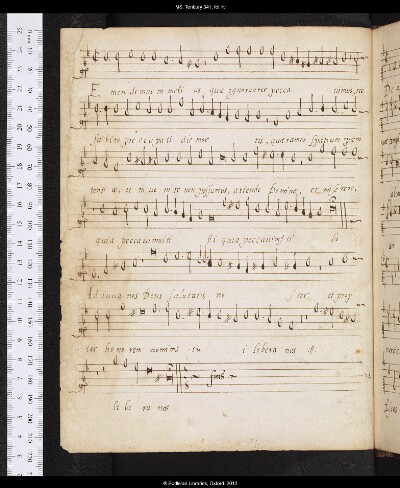 MS. Tenbury 341, fol.
E men de mus in meli us quæ ignoranter pecca vimus, ne
subito præ occupa ti die mor tis, quæramus spatium pœni
tenti æ, et in ue ni re non possumus, attende Domine, et miserere,
quia peccauimus ti bi quia peccauimus ti bi
Ad iuua nos Deus salutaris no ster, et prop
ter honorem nominis tu i libera nos ij.
li be ra nos
finis
© Bodleian Libraries, Oxford, 2012